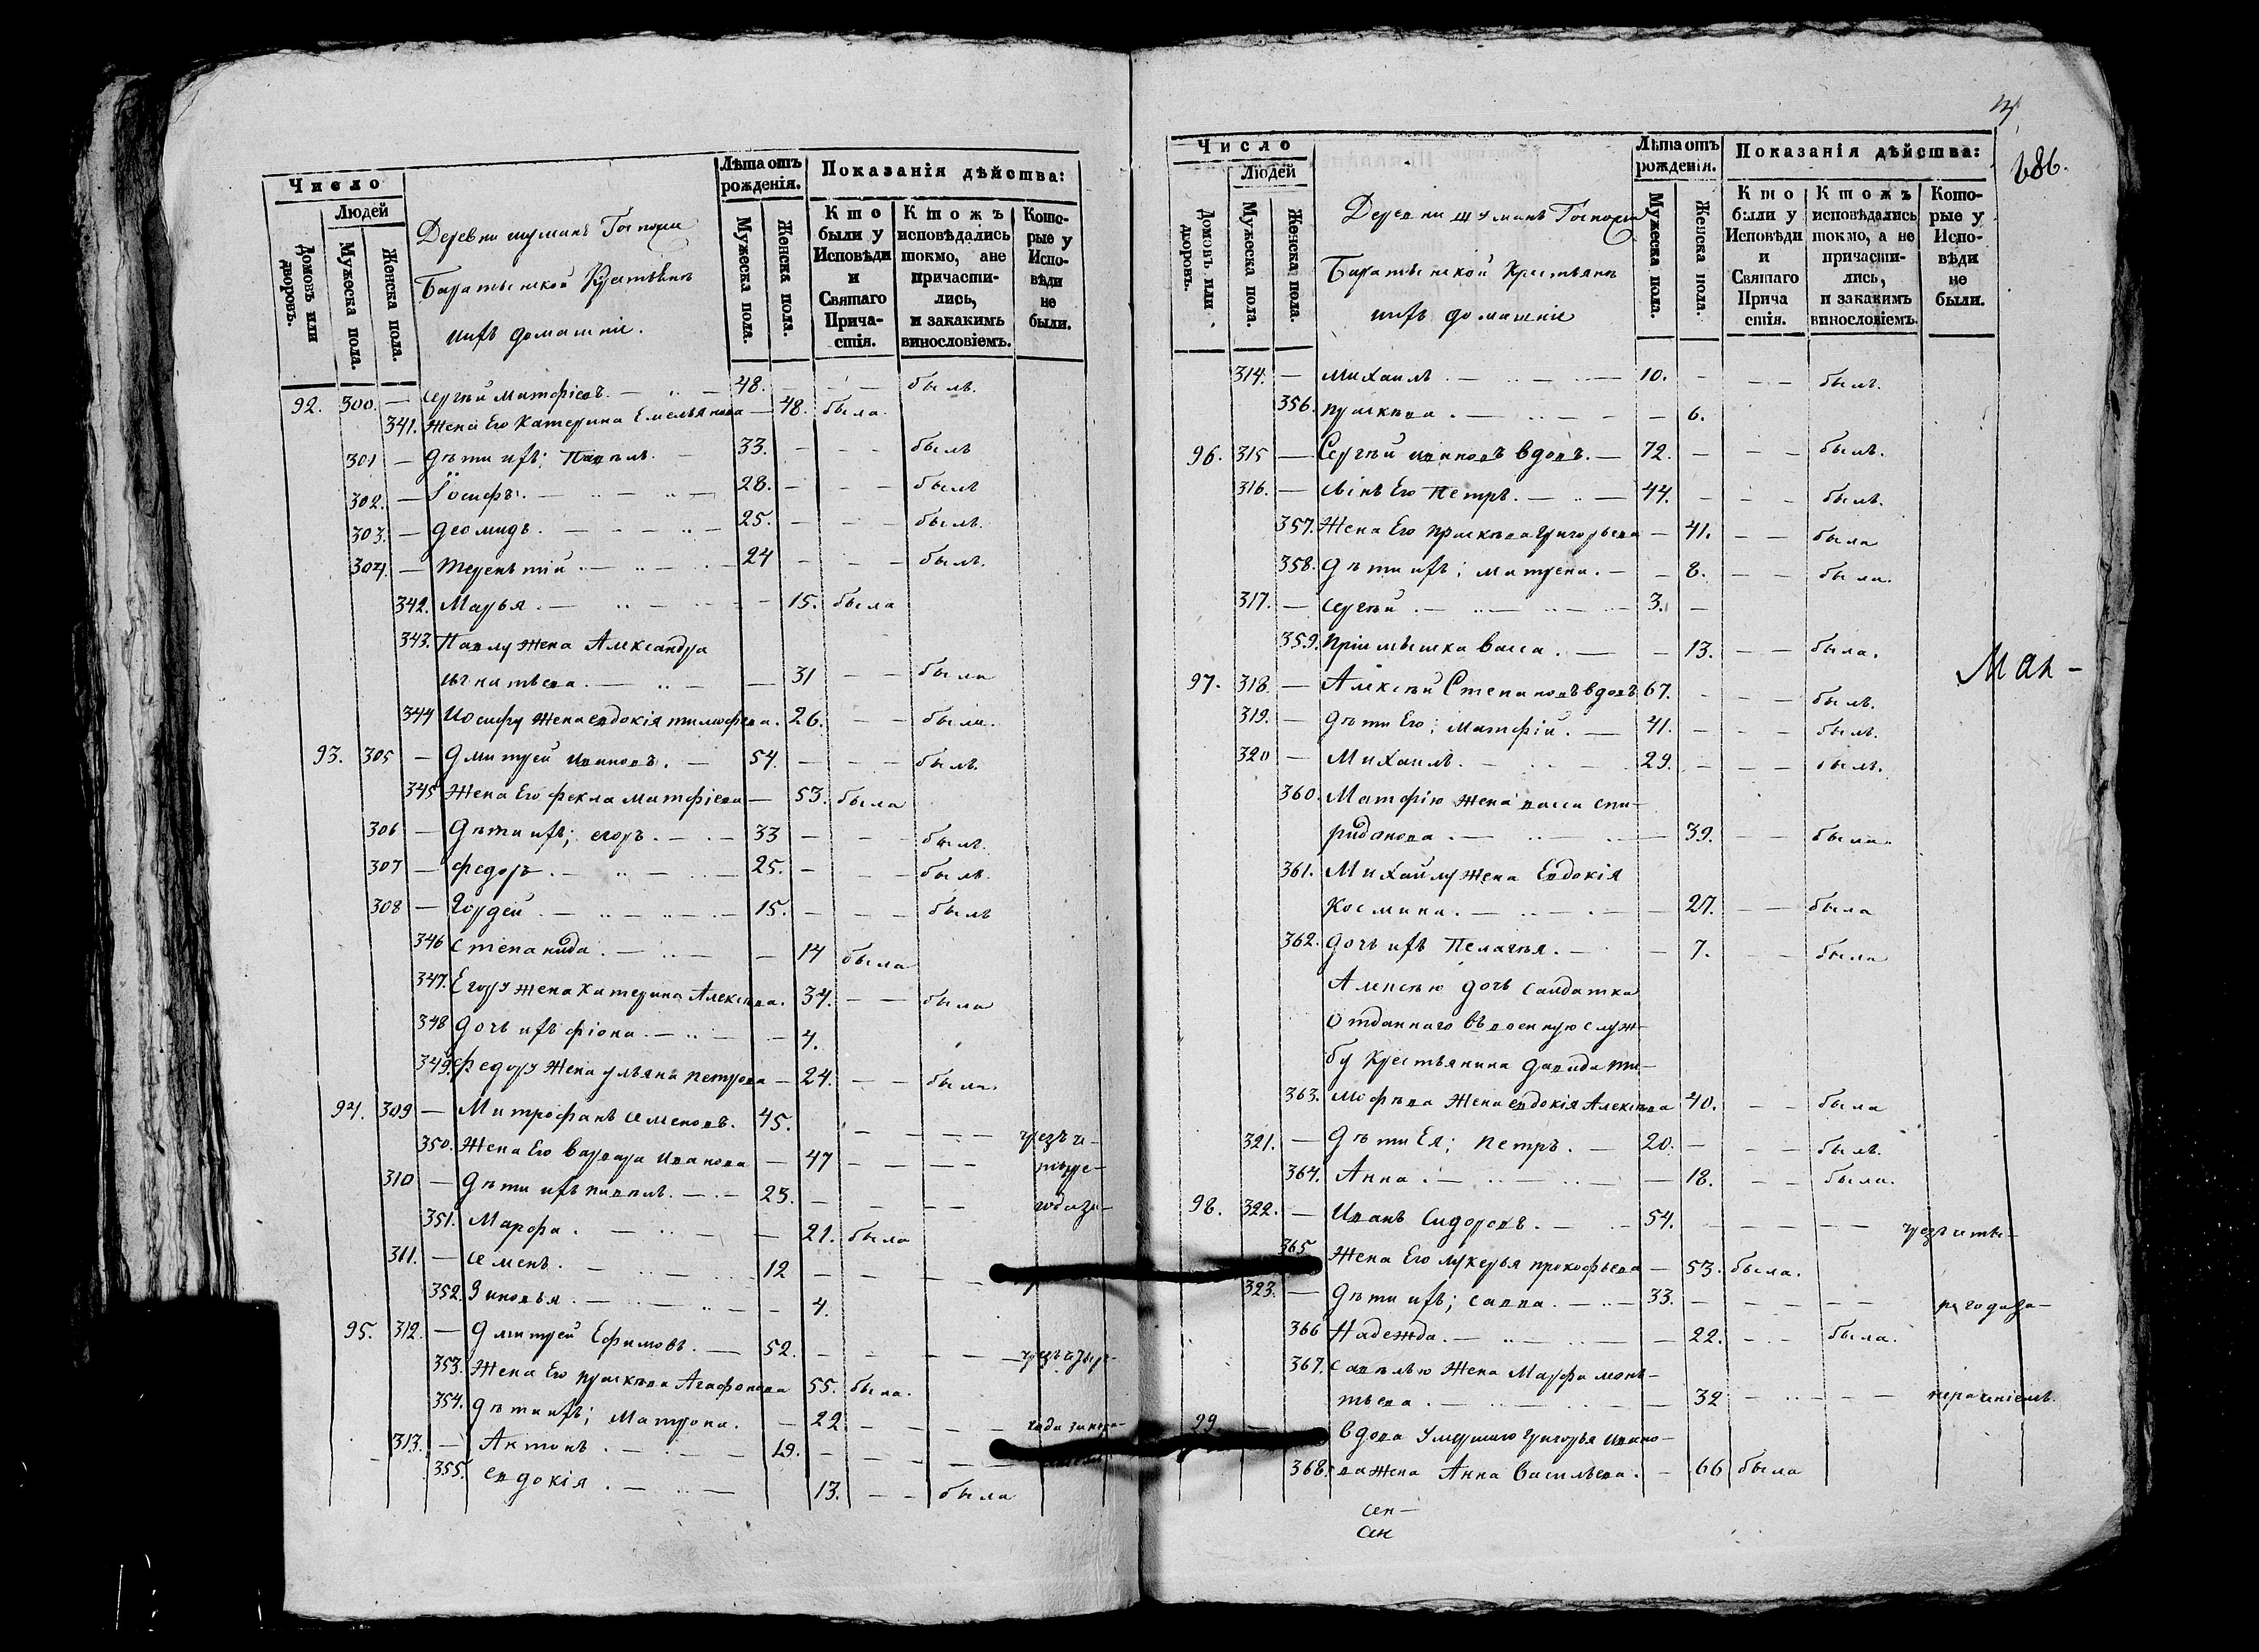 Число
Людей
Домовъ или дворовъ.
Мужеска пола.
Женска пола.
Деревни шуманъ Госпожи
Баратынской Крестьянъ
ихъ домашніе.
Лѣта отъ рожденія.
Мужеска пола.
Женска пола.
Показанія дѣйства:
Кто были у Исповѣди и Святаго Прича-стія.
Ктожъ исповѣдались токмо, ане причасти-лись, и закакимъ винословіемъ.
Кото-рые у Испо-вѣди не были.
92. 300. — Сергѣй Матфіевъ. — 48. — — — былъ.
341. Жена Его Катерина Емельянова — 48. была.
301 — Дѣти ихъ; Павелъ. — 33. — — — былъ
302. — Іосифъ. — 28. — — — былъ
303. — Деомидъ. — 25. — — — былъ.
304. — Терентій. — 24 — — — былъ.
342. Марья. — 15. была
343. Павлу жена Александра
Игнатьева. — 31 — — была
344 Иосифу жена евдокія тимофеева. 26. — — была.
93. 305 — Дмитрей Ивановъ. — 54. — — — былъ.
345 Жена Его фекла Матфіева — 53. была
306 — Дѣти ихъ; егоръ. — 33 — — — былъ.
307 — федоръ. — 25. — — — былъ.
308 — Гордей. — 15. — — — былъ
346 Степанида. — 14 была
347. Егору жена катерина Алексѣева. 34. — — была
348 Дочь ихъ фіона. — 4.
349. федору Жена ульяна петрова — 24. — — была.
94. 309 — Митрофанъ семеновъ. 45. — — —
350. Жена Его варвара Иванова — 47 — — —
310 — Дѣти ихъ павелъ. — 23. — — —
351. Марфа. — 21. была
311. — семенъ. — 12 — — —
352. Зиновья. — 4.
95. 312. — Дмитрей Ефимовъ. — 52. — — —
353. Жена Его прасковья Агафонова 55. была.
354. Дѣти ихъ; Матрона. — 22 — — —
313. — Антонъ. — 19. — — —
355. евдокія. — 13. — — была
686.
Число
Людей
Домовъ или дворовъ.
Мужеска пола.
Женска пола.
Деревни шуманъ Госпожи
Баратынской Крестьянъ
ихъ домашніе
Лѣта отъ рожденія.
Мужеска пола.
Женска пола.
Показанія дѣйства:
Кто были у Исповѣди и Святаго Прича стія.
Ктожъ исповѣдались токмо, а не причасти-лись, и закакимъ винословіемъ.
Кото-рые у Испо-вѣди не были.
314. — Михаилъ. — 10. — — — былъ.
356. прасковья. — 6.
96. 315 — Сергѣй ивановъ вдовъ. — 72. — — — былъ.
316. — сынъ Его Петръ. — 44. — — — былъ.
357. Жена Его прасковья григорьева — 41. — — была
358. Дѣти ихъ; матрена. — 8. — — была.
317. — сергѣй. — 3. —
359. Пріимышка васса. — 13. — — была.
97. 318. — Алексѣй Степановъ вдовъ 67. — — — былъ.
319. — Дѣти Его; Матфій. — 41. — — — былъ.
320 — Михаилъ. — 29. — — — былъ.
360. Матфію жена васса спи-
ридонова. — 39. — — была.
361. Михайлу жена Евдокія
Космина. — 27. — — была
362. Дочь ихъ Пелагея. — 7. — — была
Алексѣю дочь салдатка
Отданнаго въ военную служ-
бу крестьянина давида ти-
363. мофѣева жена евдокія Алексѣева 40. — — была
321. — Дѣти Ея; Петръ. — 20. — — — былъ.
364. Анна. — 18. — — была.
98. 322. — Иванъ Сидоровъ. — 54. — — —
365 Жена Его лукерья прокофьева — 53. была.
323. — Дѣти ихъ; савва. — 33. — — —
366 Надежда. — 22. — — была.
367. савелью Жена Марфа
тьева. — 32 — — —
99 — вдова Умершаго григорья ивано-
368. ва жена Анна васильева. — 66 была
Ман-